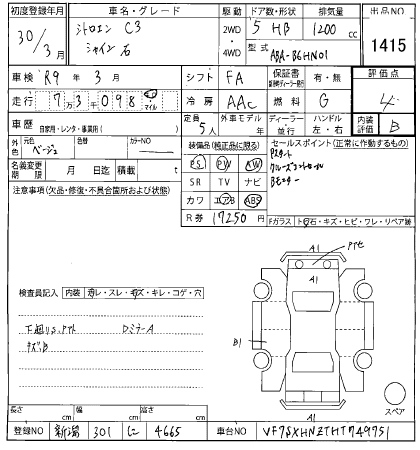 初度登録年月 車名・グレード 駆動 ドア数・形状 排気量 出品NO
30/3月 シトロエン C3 2WD・4WD 5 HB 1200cc 1415
シャイン 型式 ABA-B6HN01
車検 R9年3月 シフト FA 保証書 有・無 評価点
走行 73098 マイル 冷房 AAC 燃料 G 4
車歴 自家用・レンタ・事業用( ) 定員 5人 外車モデル 年 ディーラー・並行 ハンドル 左・右 内装評価 B
外色 元色 ベージュ 色替 カラーNO 装備品(純正品に限る) セールスポイント(正常に作動するもの)
名義変更期限 月 日迄 積載 t PS PW AW Pスタート
注意事項(欠品・修復・不具合箇所および状態) SR TV ナビ クルーズコントロール
カワ エアB ABS Bモニター
R券 17250円 Fガラス トビ石・キズ・ヒビ・ワレ・リペア跡
A1 タッチ
A1
検査員記入 内装 ヨゴレ・スレ・キズ・キレ・コゲ・穴
下廻りS Dミラー A B1
キズ B
A1 スペア
長さ cm 幅 cm 高さ cm
登録NO 新潟 301 に 4665 車台NO VF7SXHNZTHT749751